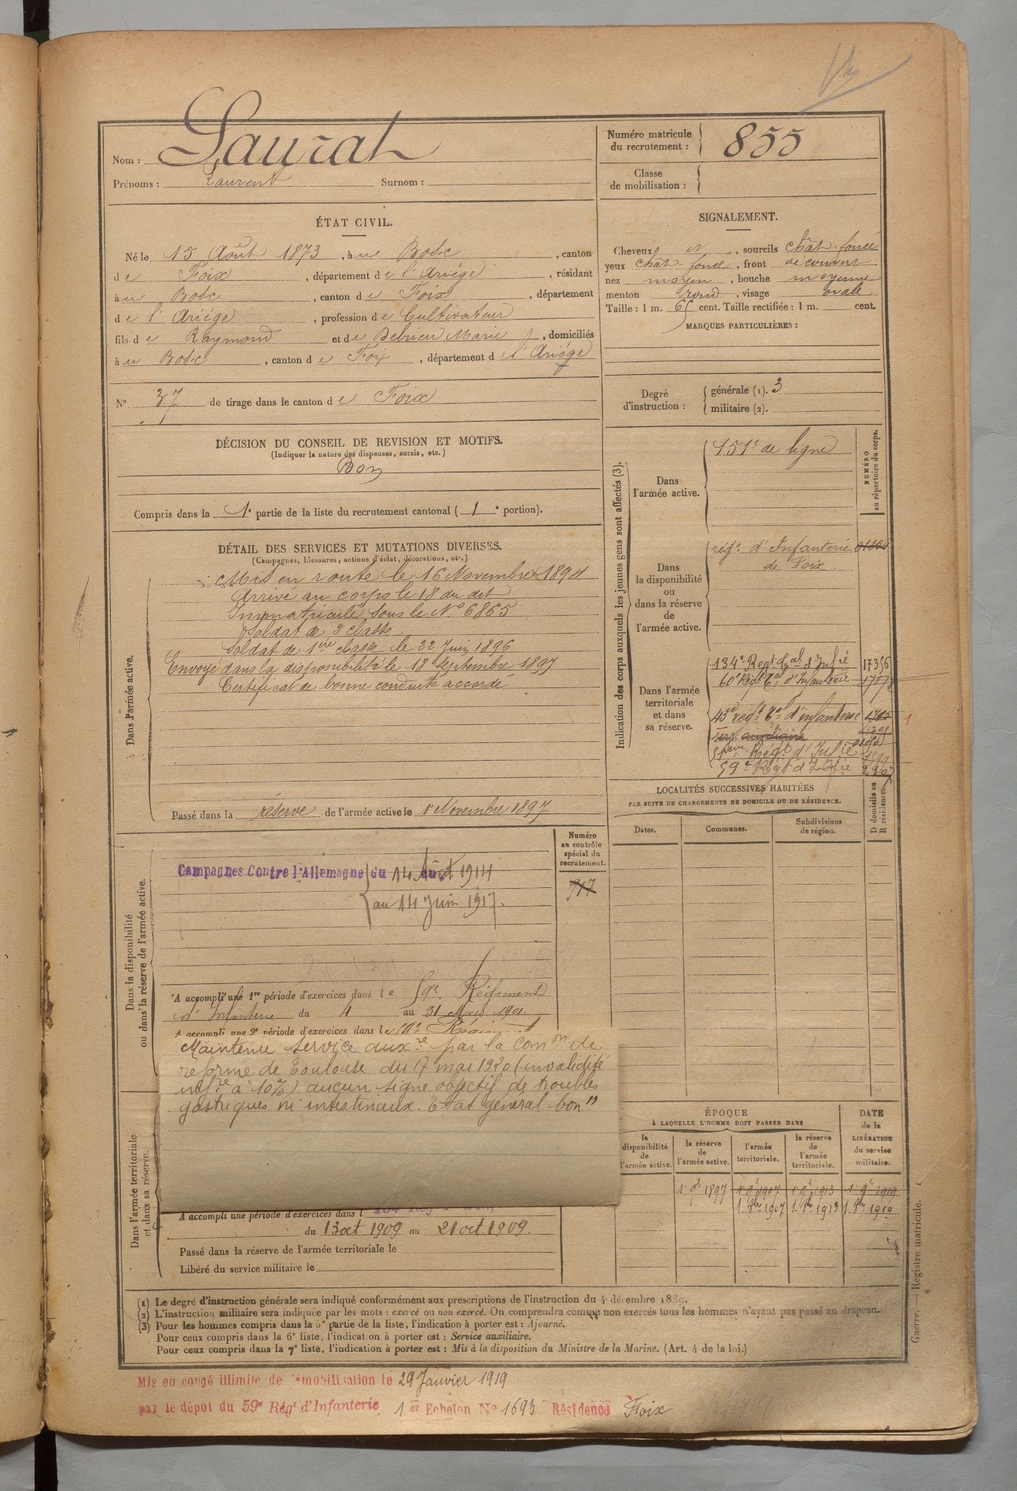 Nom : Laurat
Prénoms : Laurent Surnom :
Numéro matricule du recrutement : 855
Classe de mobilisation :
ÉTAT CIVIL.
Né le 15 Août 1873, à u Bosc, canton
d e Foix, département d e l'Ariége, résidant
à u Bosc, canton d e Foix, département
d e l'Ariége, profession d e Cultivateur
fils d e Raymond et d e Marie, domiciliés
à u Bosc, canton d e Foix, département d e l'Ariége
N° 37 de tirage dans le canton d e Foix
SIGNALEMENT.
Cheveux et, sourcils chât. foncé
yeux chât. foncé, front découvert
nez moyen, bouche moyenne
menton rond, visage ovale
Taille : 1 m. 65 cent. Taille rectifiée : 1 m. cent.
MARQUES PARTICULIÈRES :
Degré d'instruction : générale (1). 3
militaire (2).
DÉCISION DU CONSEIL DE REVISION ET MOTIFS.
(Indiquer la nature des dispenses, sursis, etc.)
Bon
Compris dans la 1e partie de la liste du recrutement cantonal ( 1e portion).
DÉTAIL DES SERVICES ET MUTATIONS DIVERSES.
(Campagnes, blessures, actions d'éclat, décorations, etc.)
Dans l'armée active.
Mis en route le 16 Novembre 1894
Arrivé au corps le 18 du dit
Immatriculé sous le N° 6865
Soldat de 2 classe
Soldat de 1ère classe le 22 Juin 1896
Envoyé dans la disponibilité le 18 Septembre 1897
Certificat de bonne conduite accordé
Passé dans la réserve de l'armée active le 1er Novembre 1897
Indication des corps auxquels les jeunes gens sont affectés (3).
NUMÉRO au répertoire du corps.
Dans l'armée active.
151e de ligne
Dans la disponibilité ou dans la réserve de l'armée active.
régt d'Infanterie
de Foix
Dans l'armée territoriale et dans sa réserve.
134e Regt Eal d'Infie
60e Régt Eal d'Infanterie
43e régt Eal d'infanterie
serv. auxiliaire
Régt d'Infie
59e Régt d'Infie
LOCALITÉS SUCCESSIVES HABITÉES
PAR SUITE DE CHANGEMENTS DE DOMICILE OU DE RÉSIDENCE.
Dates. Communes. Subdivisions de région. D domicile ou R résidence.
Dans la disponibilité ou dans la réserve de l'armée active.
Numéro au contrôle spécial du recrutement.
717
Campagnes Contre l'Allemagne du 14 Août 1914
au 14 Juin 1917.
A accompli une 1re période d'exercices dans l e 59e Régiment
d'Infanterie du 4 au 31 Mars 1901
A accompli une 2e période d'exercices dans l e
Maintenu service auxre par la Comon de
réforme de Toulouse du 17 mai 1920 (invalidité
infre à 10%) aucun signe objectif de troubles
gastriques ni intestinaux. État général bon"
Dans l'armée territoriale et dans sa réserve.
A accompli une période d'exercices dans l
du 13 oct 1909 au 21 oct 1909.
Passé dans la réserve de l'armée territoriale le
Libéré du service militaire le
ÉPOQUE
À LAQUELLE L'HOMME DOIT PASSER DANS
la disponibilité de l'armée active. la réserve de l'armée active. l'armée territoriale. la réserve de l'armée territoriale.
DATE de la LIBÉRATION du service militaire.
1 9e 1897
(1) Le degré d'instruction générale sera indiqué conformément aux prescriptions de l'instruction du 4 décembre 1889.
(2) L'instruction militaire sera indiquée par les mots : exercé ou non exercé. On comprendra comme non exercés tous les hommes n'ayant pas passé au drapeau.
(3) Pour les hommes compris dans la 5e partie de la liste, l'indication à porter est : Ajourné.
Pour ceux compris dans la 6e liste, l'indication à porter est : Service auxiliaire.
Pour ceux compris dans la 7e liste, l'indication à porter est : Mis à la disposition du Ministre de la Marine. (Art. 4 de la loi.)
Guerre. — Registre matricule.
Mis en congé illimité de démobilisation le 29 Janvier 1919
par le dépôt du 59e Régt d'Infanterie 1er Echelon N° 1693 Résidence Foix